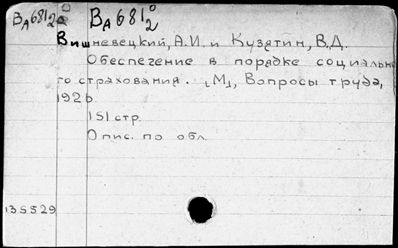 ВА681 2
ВА681 0/2
Вишневецкий, А.И. и Кузятин, В.Д.
Обеспечение в порядке социально
го страхования. [М], Вопросы труда,
1926
151 стр.
Опис. по обл.
135529